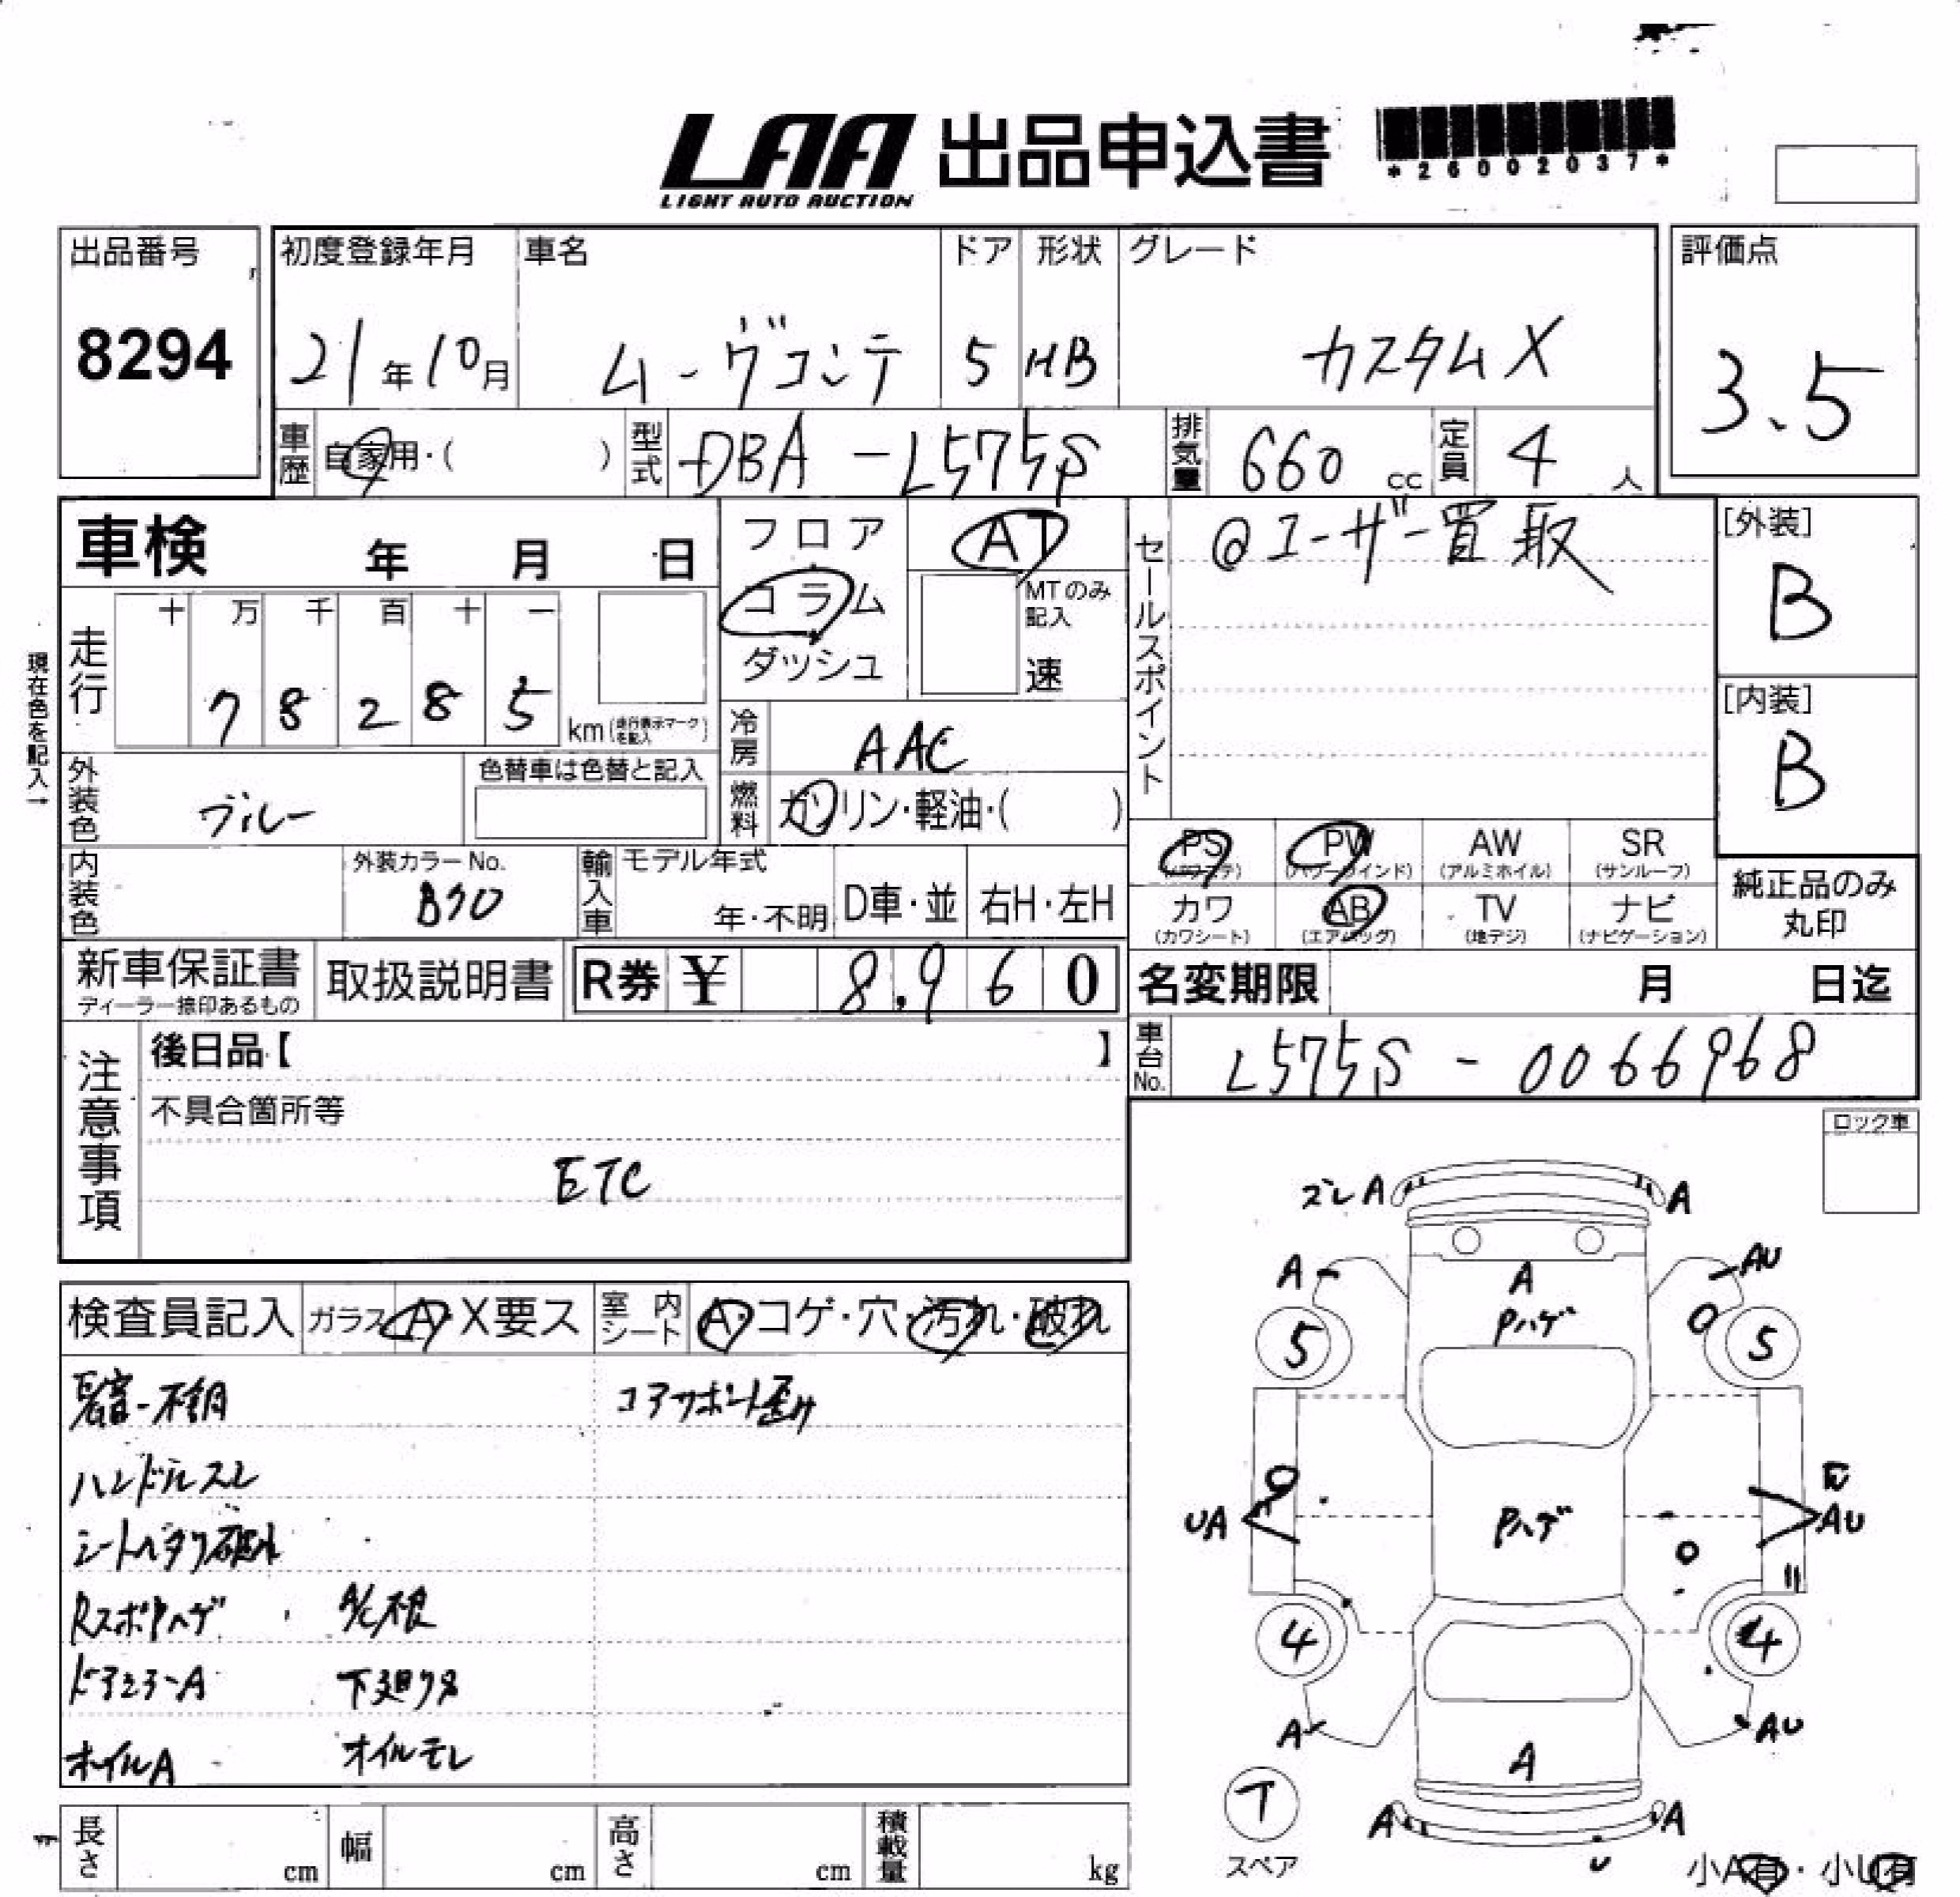 LAA 出品申込書
LIGHT AUTO AUCTION
*26002037*
出品番号
8294
初度登録年月
21年10月
車名
ムーヴコンテ
ドア
5
形状
HB
グレード
カスタムX
評価点
3.5
車歴 自家用・( )
型式 DBA-L575S
排気量 660 cc
定員 4 人
車検 年 月 日
走行 十 万 千 百 十 一
7 8 2 8 5
km (走行表示マークを記入)
現在色を記入→
フロア
コラム
ダッシュ
AT
MTのみ記入
速
冷房 AAC
燃料 ガソリン・軽油・( )
セールスポイント
@ユーザー買取
[外装]
B
[内装]
B
外装色 ブルー
色替車は色替と記入
内装色
外装カラーNo.
B70
輸入車
モデル年式
年・不明
D車・並
右H・左H
PS (パワーステ)
PW (パワーウインド)
AW (アルミホイル)
SR (サンルーフ)
カワ (カワシート)
AB (エアバッグ)
TV (地デジ)
ナビ (ナビゲーション)
純正品のみ
丸印
新車保証書
ディーラー捺印あるもの
取扱説明書
R券 ¥ 8,960
名変期限 月 日迄
車台No. L575S-0066968
注意事項
後日品【 】
不具合箇所等
ETC
ロック車
検査員記入
ガラス A・X要ス
室内シート A・コゲ・穴・汚れ・破れ
コアサポート歪み
ハンドルスレ
RスポPハゲ
A/C不良
ドアミラーA
下廻りサビ
ホイルA
オイルモレ
ズレA
A
A
AU
A
Pハゲ
5
5
UA
Pハゲ
AU
4
4
A
AU
A
T
スペア
A
A
U
小A有・小U有
長さ cm
幅 cm
高さ cm
積載量 kg